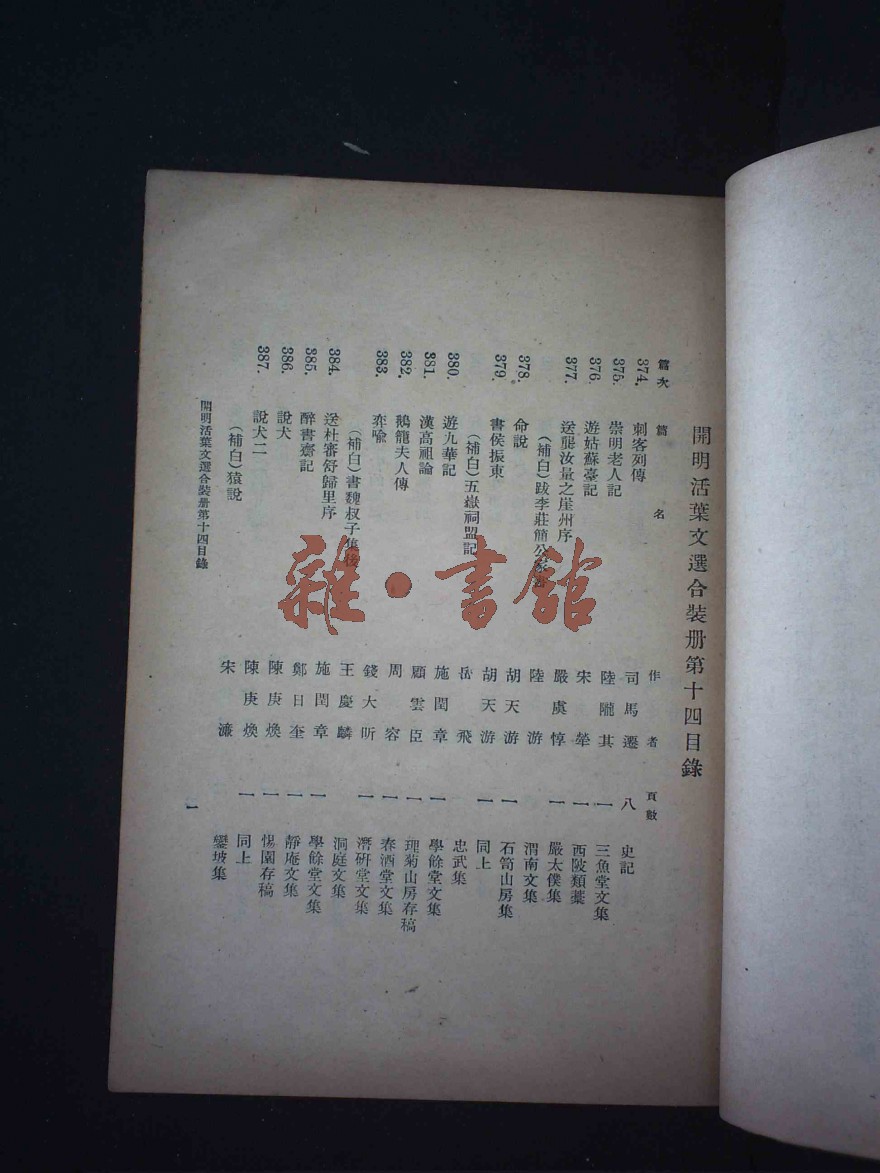 開明活葉文選合裝册第十四目錄
篇次 篇 名 作 者 頁數
374. 刺客列傳 司馬遷 八 史記
375. 崇明老人記 陸隴其 一 三魚堂文集
376. 游姑蘇臺記 宋犖 一 西陂類藁
377. 送龔汝量之崖州序 嚴虞惇 一 嚴太僕集
(補白)跋李莊簡公家書 陸游 渭南文集
378. 命說 胡天游 一 石笥山房集
379. 書侯振東 胡天游 一 同上
(補白)五嶽祠盟記 岳飛 忠武集
380. 遊九華記 施閏章 一 學餘堂文集
381. 漢高祖論 顧雲臣 一 理菊山房存稿
382. 鵝籠夫人傳 周容 一 春酒堂文集
383. 弈喻 錢大昕 一 潛研堂文集
(補白)書魏叔子集後 王慶麟 一 洞庭文集
384. 送杜審舒歸里序 施閏章 一 學餘堂文集
385. 醉書齋記 鄭日奎 一 靜庵文集
386. 說犬 陳庚煥 一 惕園存稿
387. 說犬二 陳庚煥 一 同上
(補白)猿說 宋濂 鑾坡集
開明活葉文選合裝册第十四目錄 一
雜·書館